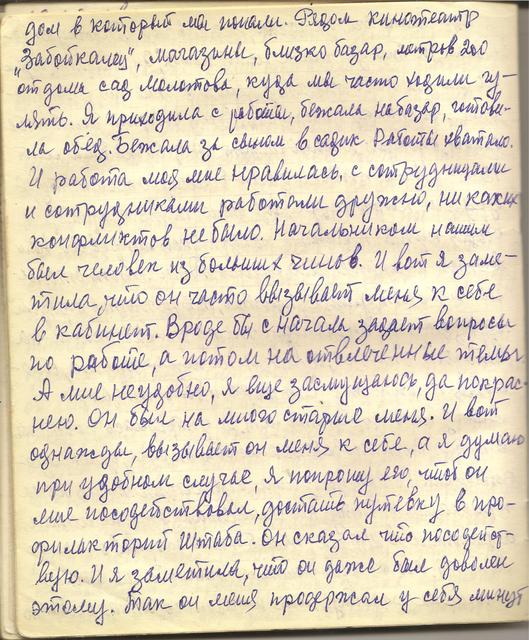 дом в который мы попали. Рядом кинотеатр
"Забойкалец", магазины, близко базар, метров 200
от дома сад Молотова, куда мы часто ходили гу-
лять. Я приходила с работы, бежала на базар, готови-
ла обед. Бежала за сыном в садик Работы хватало.
И работа моя мне нравилась, с сотрудницами
и сотрудниками работали дружно, никаких
конфликтов не было. Начальником нашим
был человек из больших чинов. И вот я заме-
тила, что он часто вызывает меня к себе
в кабинет. Вроде бы с начала задает вопросы
по работе, а потом на отвлеченные темы
А мне неудобно, я еще засмущаюсь, да покрас-
нею. Он был на много старше меня. И вот
однажды, вызывает он меня к себе, а я думаю
при удобном случае, я попрошу его, чтоб он
мне посодействовал, достать путевку в про-
филакторий Штаба. Он сказал что посодейст-
вую. И я заметила, что он даже был доволен
этому. Так он меня продержал у себя минут